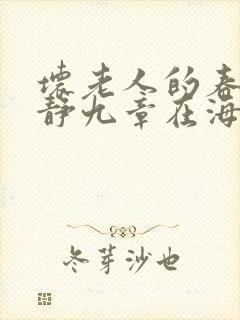 壞老人的春
静九章在海
冬芽沙也